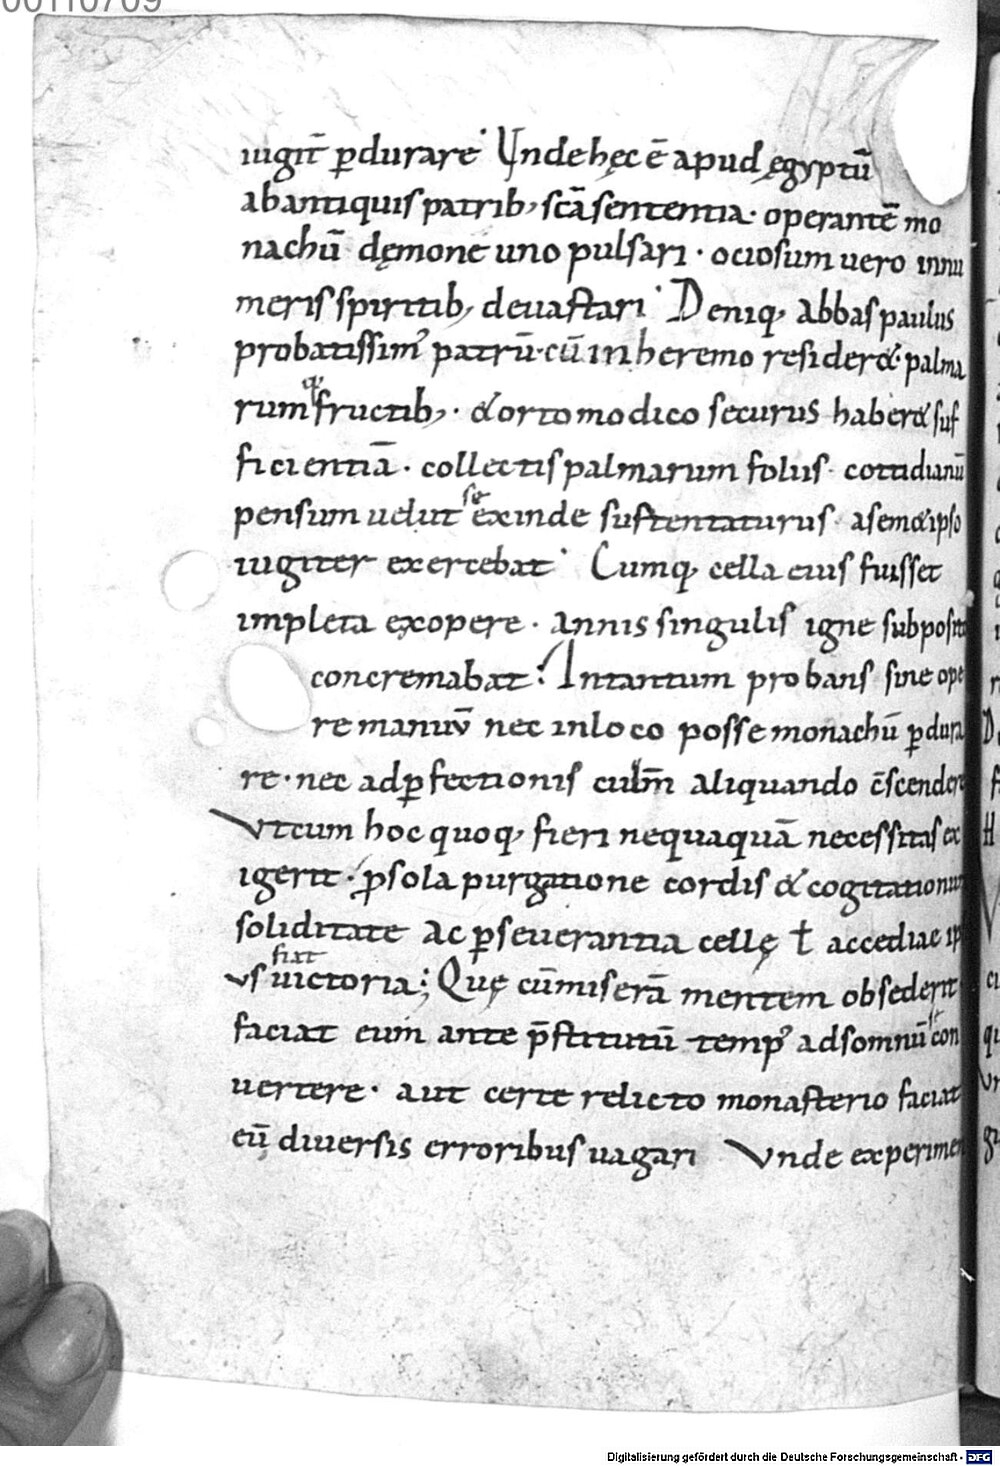 00110709
iugit̄ ꝑdurare Unde hęc ē apud ęgyptū
ab antiquis patrib; scā sententia · operantē mo
nachū dęmone uno pulsari · ociosum uero innu
meris spiritib; deuastari Deniq; abbas paulus
probatissim᾿ patrū · cū in heremo resider& · palma
rum fructib; q; · & orto modico securus haber& suf
ficientiā · collectis palmarum foliis · cottidianū
pensum uelut se exinde sustentaturus · a sem&ipso
iugiter exercebat Cumq; cella eius fuisset
impleta ex opere · annis singulis igne subposito
concremabat : In tantum probans sine ope
re manuū nec in loco posse monachū ꝑdura
re · nec ad ꝑfectionis culm̄ aliquando c̄scendere
Ut cum hoc quoq; fieri nequaquā necessitas ex
igerit · ꝓ sola purgatione cordis & cogitationum
soliditate ac ꝑseuerantia cellę ł accediae ip
us fiat uictoria ; Quę cū miserā mentem obsederit
faciat eum ante p̄stitutū temp᾿ ad somnū se con
uertere · aut certe relicto monasterio faciat
eū diuersis erroribus uagari Unde experimen
Digitalisierung gefördert durch die Deutsche Forschungsgemeinschaft - DFG